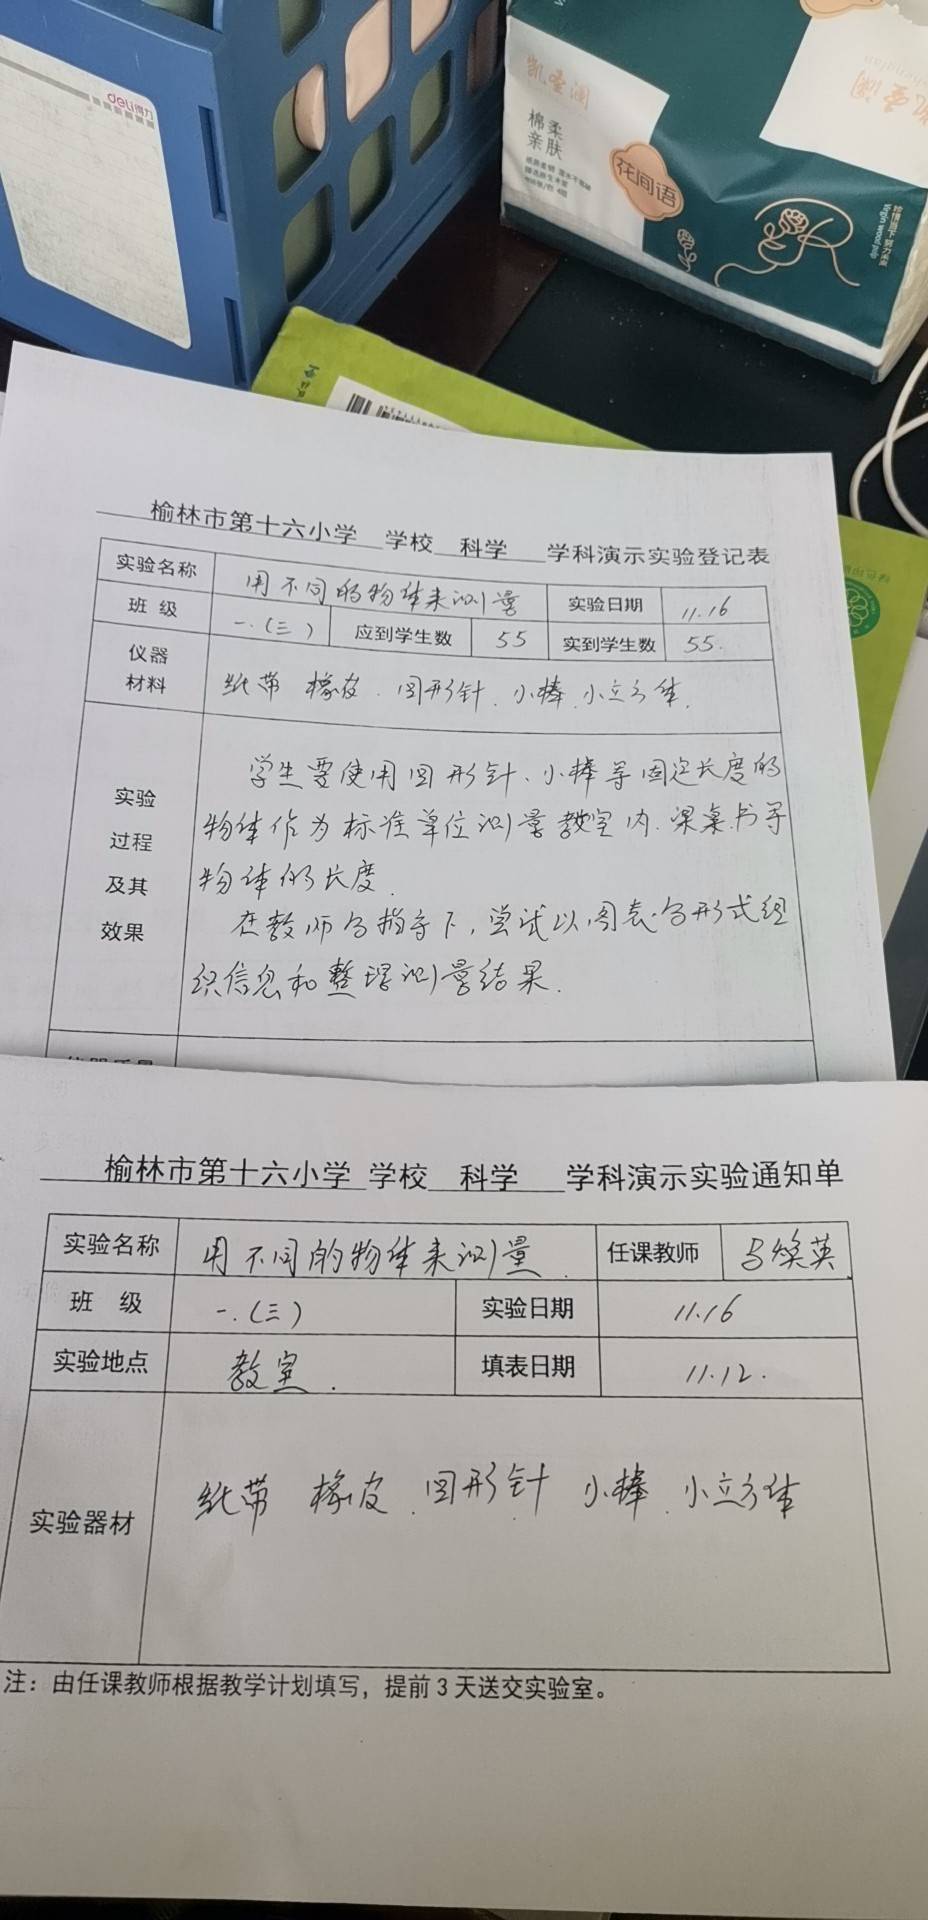 deli得力
棉柔
亲肤
花间语
榆林市第十六小学 学校 科学 学科演示实验登记表
实验名称 用不同的物体来测量 实验日期 11.16
班 级 一.(三) 应到学生数 55 实到学生数 55.
仪器
材料
纸带 橡皮.回形针.小棒.小立方体.
实验
过程
及其
效果
学生要使用回形针、小棒等固定长度的
物体作为标准单位测量教室内.课桌.书等
物体的长度.
在教师的指导下,尝试以图表的形式组
织信息和整理测量结果.
榆林市第十六小学 学校 科学 学科演示实验通知单
实验名称 用不同的物体来测量. 任课教师 焕英
班 级 一.(三) 实验日期 11.16
实验地点 教室. 填表日期 11.12.
实验器材 纸带 橡皮.回形针 小棒.小立方体
注：由任课教师根据教学计划填写，提前3天送交实验室。